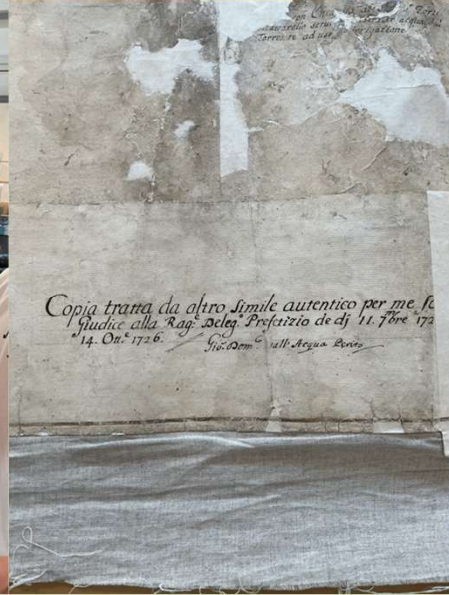 Torrente ad uso
Copia tratta da altro simile autentico per me
Giudice alla Rag.e Deleg.e Prefetizio de dj 11. 7bre 172
14. Ott.e 1726.
Gio: Dom.co dall' Acqua Perito